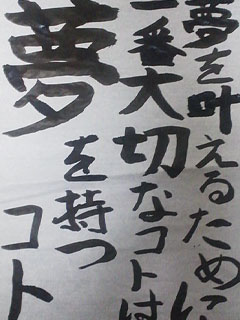 夢を叶えるために
一番大切なコトは
夢を持つコト